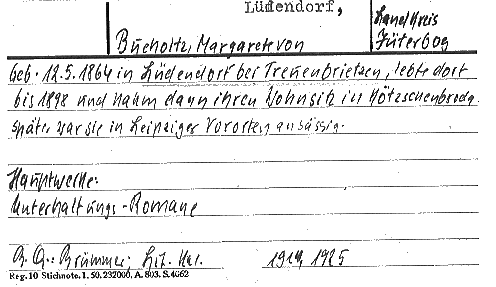 Lüdendorf,
Landkreis
Jüterbog
Bucholtz, Margarete von
geb. 12.5.1864 in Lüdendorf bei Treuenbrietzen, lebte dort
bis 1898 und nahm dann ihren Wohnsitz in Kötzschenbroda.
später war sie in Leipziger Vororten ansässig.
Hauptwerke:
Unterhaltungs-Romane
Brümmer; Lit. Kal. 1914, 1925
Reg. 10 Stichnote. 1. 50. 232000, A. 803. S. 4662